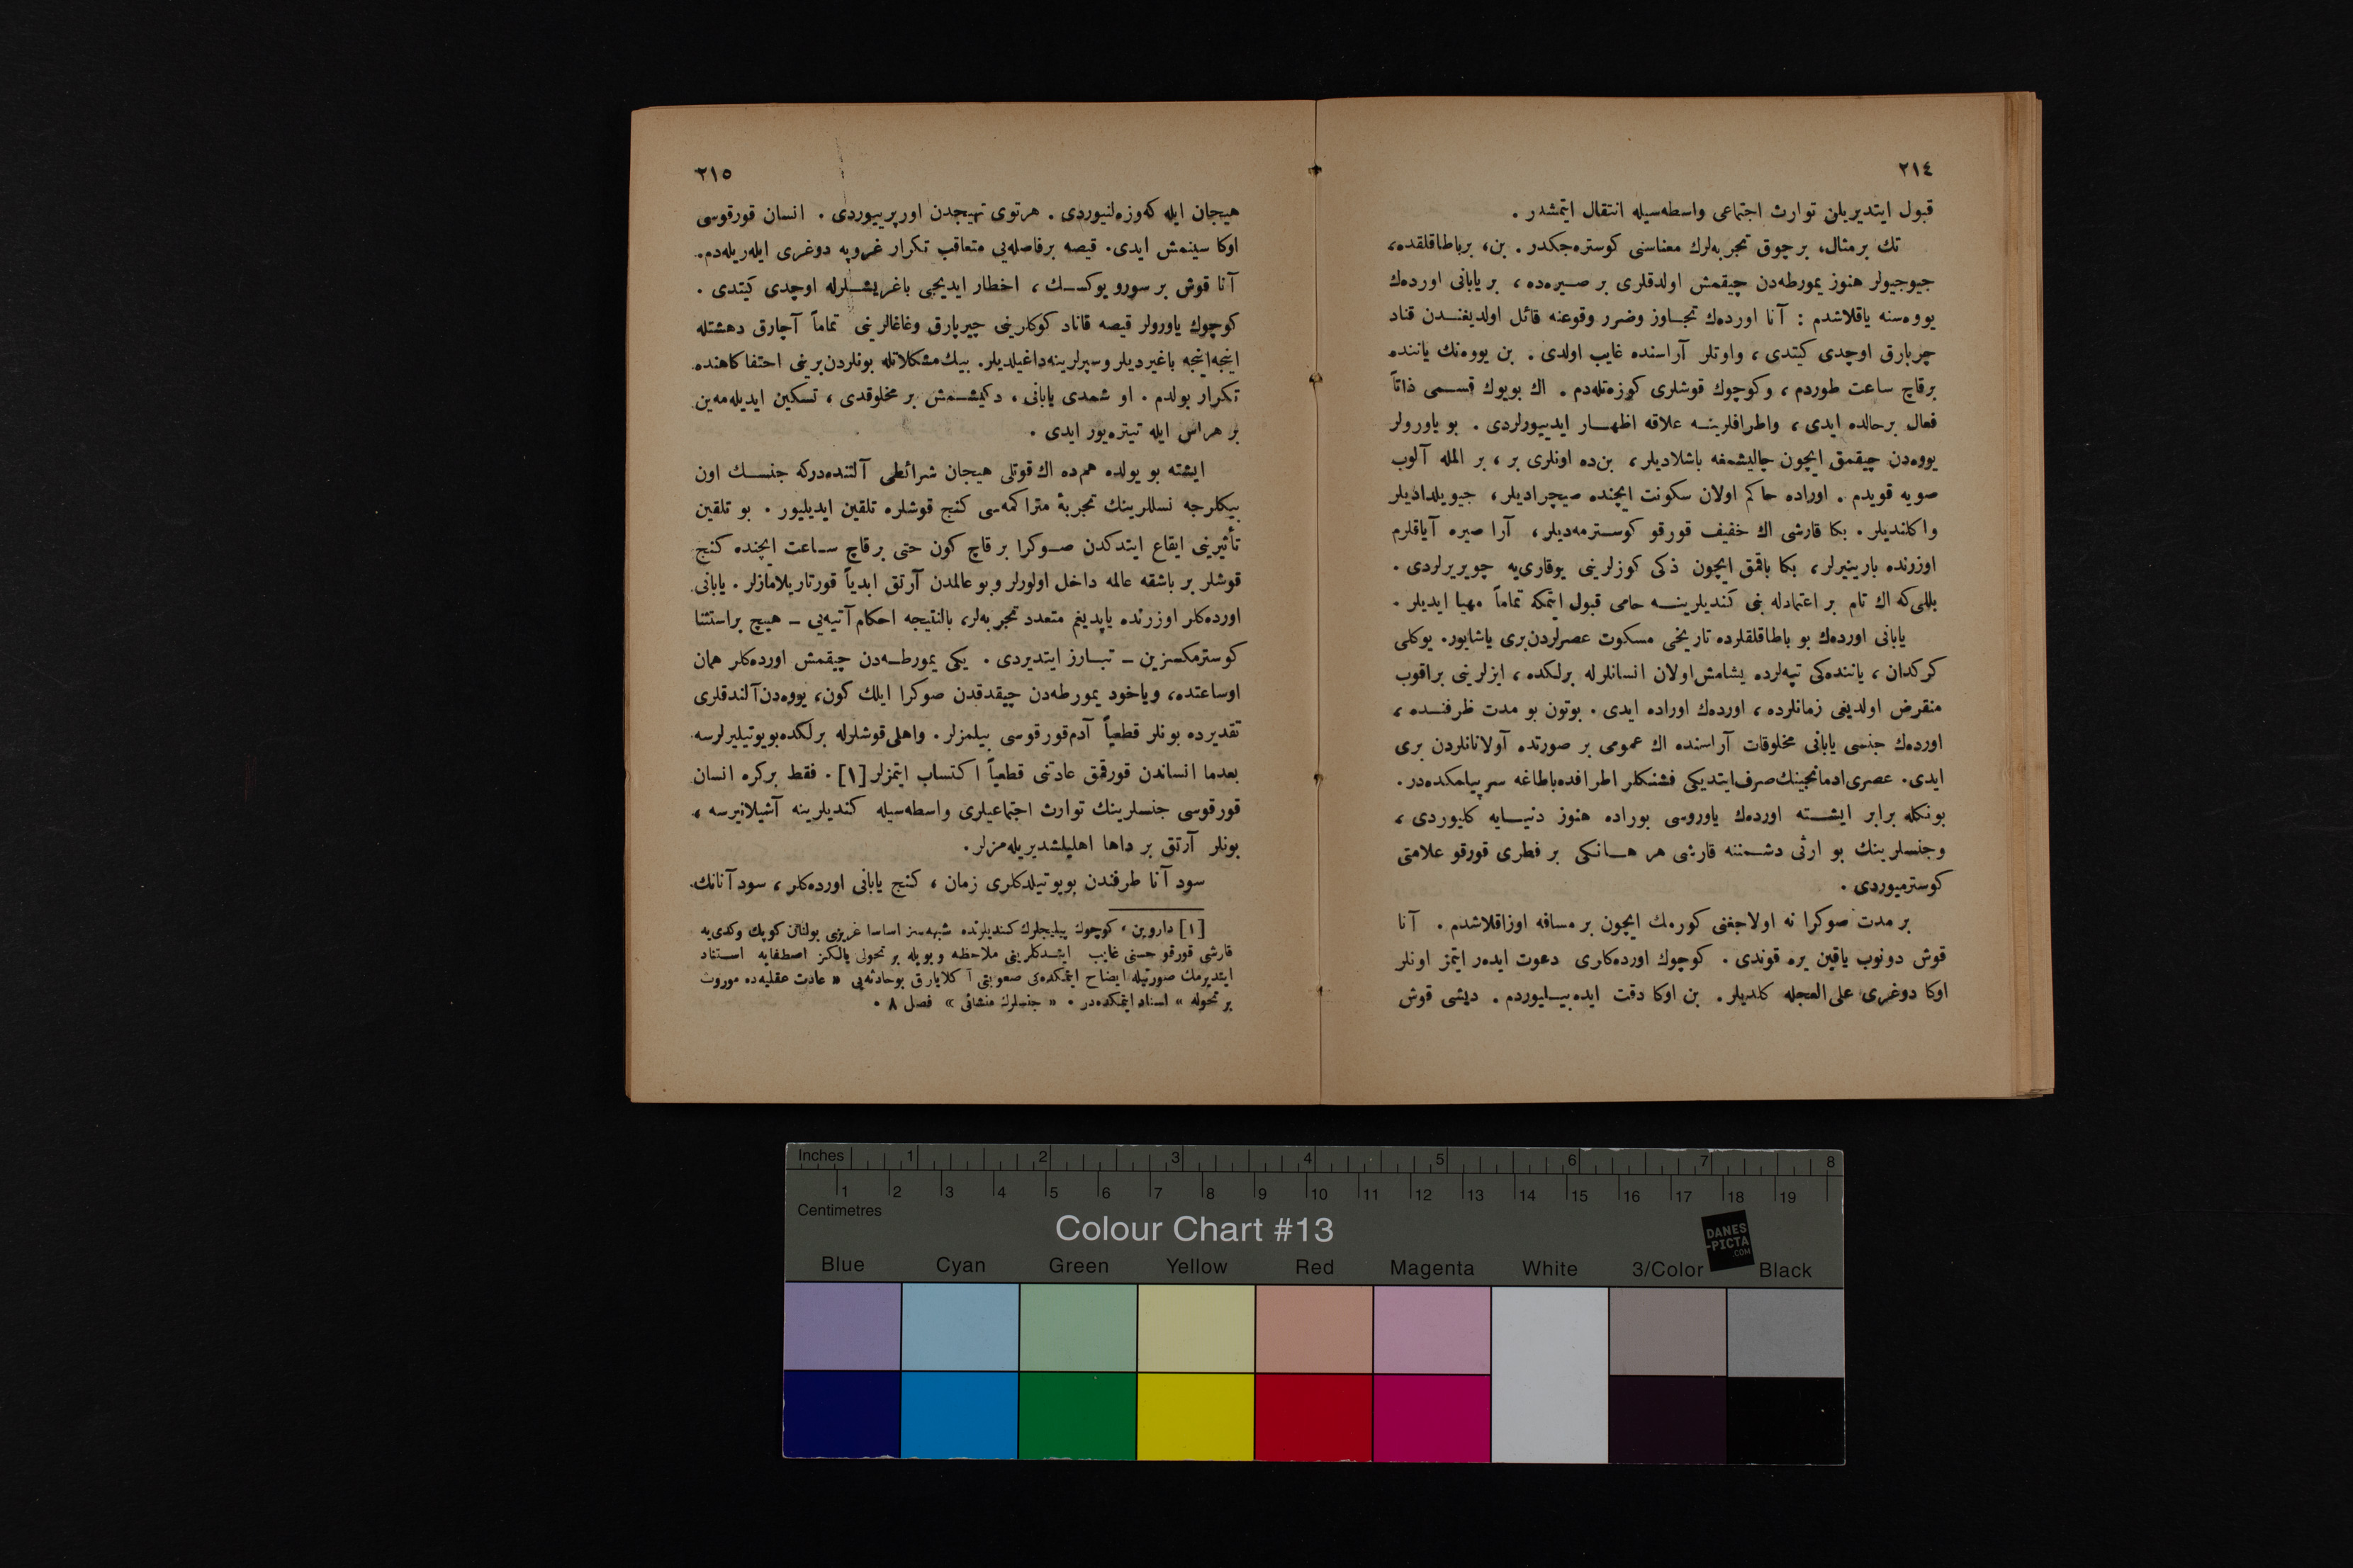 ٢١٤
قبول ايتديريلن توارث اجتماعى واسطه‌سيله انتقال ايتمشدر .
تك برمثال، برچوق تجربه‌لرك معناسنى كوستره‌جكدر . بن، برباطاقلقده،
جيوجيولر هنوز يمورطه‌دن چيقمش اولدقلرى بر صيره‌ده ، بر يابانى اورده‌ك
يووه‌سنه ياقلاشدم : آنا اورده‌ك تجاوز وضرر وقوعنه قائل اولديغندن قناد
چرپارق اوچدى كيتدى ، واوتلر آراسنده غايب اولدى . بن يووه‌نك ياننده
برقاچ ساعت طوردم ، وكوچوك قوشلرى كوزه‌تله‌دم . اك بويوك قسمى ذاتاً
فعال برحالده ايدى ، واطرافلرينه علاقه اظهار ايدييورلردى . بو ياورولر
يووه‌دن چيقمق ايچون چاليشمغه باشلاديلر، بن‌ده اونلرى بر ، بر المله آلوب
صويه قويدم . اوراده حاكم اولان سكونت ايچنده صيچراديلر، جيويلداديلر
واكلنديلر . بكا قارشى اك خفيف قورقو كوسترمه‌ديلر، آرا صيره آياقلرم
اوزرنده بارينيرلر، بكا باقمق ايچون ذكى كوزلرينى يوقارى‌يه چويريرلردى .
بللى‌كه اك تام بر اعتمادله بنى كنديلرينه حامى قبول ايتمكه تماماً مهيا ايديلر .
يابانى اورده‌ك بو باطاقلقلرده تاريخى مسكوت عصرلردن‌برى ياشايور. يوكلى
كركدان ، ياننده‌كى تپه‌لرده يشامش‌اولان انسانلرله برلكده ، ايزلرينى براقوب
منقرض اولديغى زمانلرده ، اورده‌ك اوراده ايدى . بوتون بو مدت ظرفنده ،
اورده‌ك جنسى يابانى مخلوقات آراسنده اك عمومى بر صورتده آولانانلردن برى
ايدى. عصرى‌آدمانجينك‌صرف‌ايتديكى فشنكلر اطرافده‌باطاغه سرپيلمكده‌در.
بونكله برابر ايشته اورده‌ك ياوروسى بوراده هنوز دنيايه كليوردى ،
وجنسلرينك بو ارثى دشمننه قارشى هر هانكى بر فطرى قورقو علامتى
كوسترميوردى .
بر مدت صوكرا نه اولاجغنى كورمك ايچون بر مسافه اوزاقلاشدم . آنا
قوش دونوب ياقين يره قوندى . كوچوك اورده‌كلرى دعوت ايده‌ر ايتمز اونلر
اوكا دوغرى على‌العجله كلديلر. بن اوكا دقت ايده‌بيليوردم . ديشى قوش
٢١٥
هيجان ايله كه‌وزه‌لنيوردى . هرتوى تهيجدن اورپرييوردى . انسان قورقوسى
اوكا سينمش ايدى. قيصه برفاصله‌يى متعاقب تكرار غروپه دوغرى ايله‌ريله‌دم.
آنا قوش بر سورو يوكسك ، اخطار ايديجى باغريشلرله اوچدى كيتدى .
كوچوك ياورولر قيصه قاناد كوكلرينى چيرپارق وغاغالرينى تماماً آچارق دهشتله
اينجه‌اينجه باغيرديلر وسپرلرينه‌داغيلديلر. بيك‌مشكلاتله بونلردن‌برينى احتفاكاهنده
تكرار بولدم . او شمدى يابانى ، دكيشمش بر مخلوقدى ، تسكين ايديله‌مه‌ين
بر هراس ايله تيتره‌يور ايدى .
ايشته بو يولده هم‌ده اك قوتلى هيجان شرائطى آلتنده‌دركه جنسك اون
بيكلرجه نسللرينك تجربۀ متراكمه‌سى كنج قوشلره تلقين ايديليور . بو تلقين
تأثيرينى ايقاع ايتدكدن صوكرا بر قاچ كون حتى بر قاچ ساعت ايچنده كنج
قوشلر بر باشقه عالمه داخل اولورلر وبو عالمدن آرتق ابدياً قورتاريلامازلر . يابانى
اورده‌كلر اوزرنده ياپديغم متعدد تجربه‌لر، بالنتيجه احكام آتيه‌يى ــ هيچ براستثنا
كوسترمكسزين ــ تبارز ايتديردى . يكى يمورطه‌دن چيقمش اورده‌كلر همان
اوساعتده، وياخود يمورطه‌دن چيقدقدن صوكرا ايلك كون، يووه‌دن‌آلندقلرى
تقديرده بونلر قطعياً آدم‌قورقوسى بيلمزلر. واهلى‌قوشلرله برلكده‌بويوتيليرلرسه
بعدما انساندن قورقمق عادتنى قطعياً اكتساب ايتمزلر [١] . فقط بركره انسان
قورقوسى جنسلرينك توارث اجتماعيلرى واسطه‌سيله كنديلرينه آشيلانيرسه ،
بونلر آرتق بر داها اهليلشديريله‌مزلر.
سود آنا طرفندن بويوتيلدكلرى زمان ، كنج يابانى اورده‌كلر ، سود آنانك
[١] داروين ، كوچوك پيليجلرك كنديلرنده شبهه‌سز اساسا غريزى بولنان كوپك وكدى‌يه
قارشى قورقو حسنى غايب ايتدكلرينى ملاحظه وبويله بر تحولى يالكز اصطفايه استناد
ايتديرمك صورتيله ايضاح ايتمكده‌كى صعوبتى آكلايارق بوحادثه‌يى « عادت عقليه‌ده موروث
بر تحوله » اسناد ايتمكده‌در . « جنسلرك منشائى » فصل ٨ .
Inches 1 2 3 4 5 6 7 8
1 2 3 4 5 6 7 8 9 10 11 12 13 14 15 16 17 18 19
Centimetres
Colour Chart #13
DANES
-PICTA
.COM
Blue Cyan Green Yellow Red Magenta White 3/Color Black